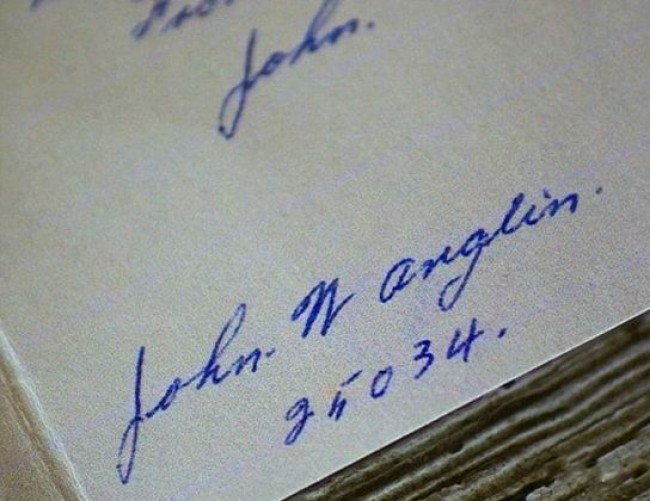 John.
John. W Anglin.
25034.